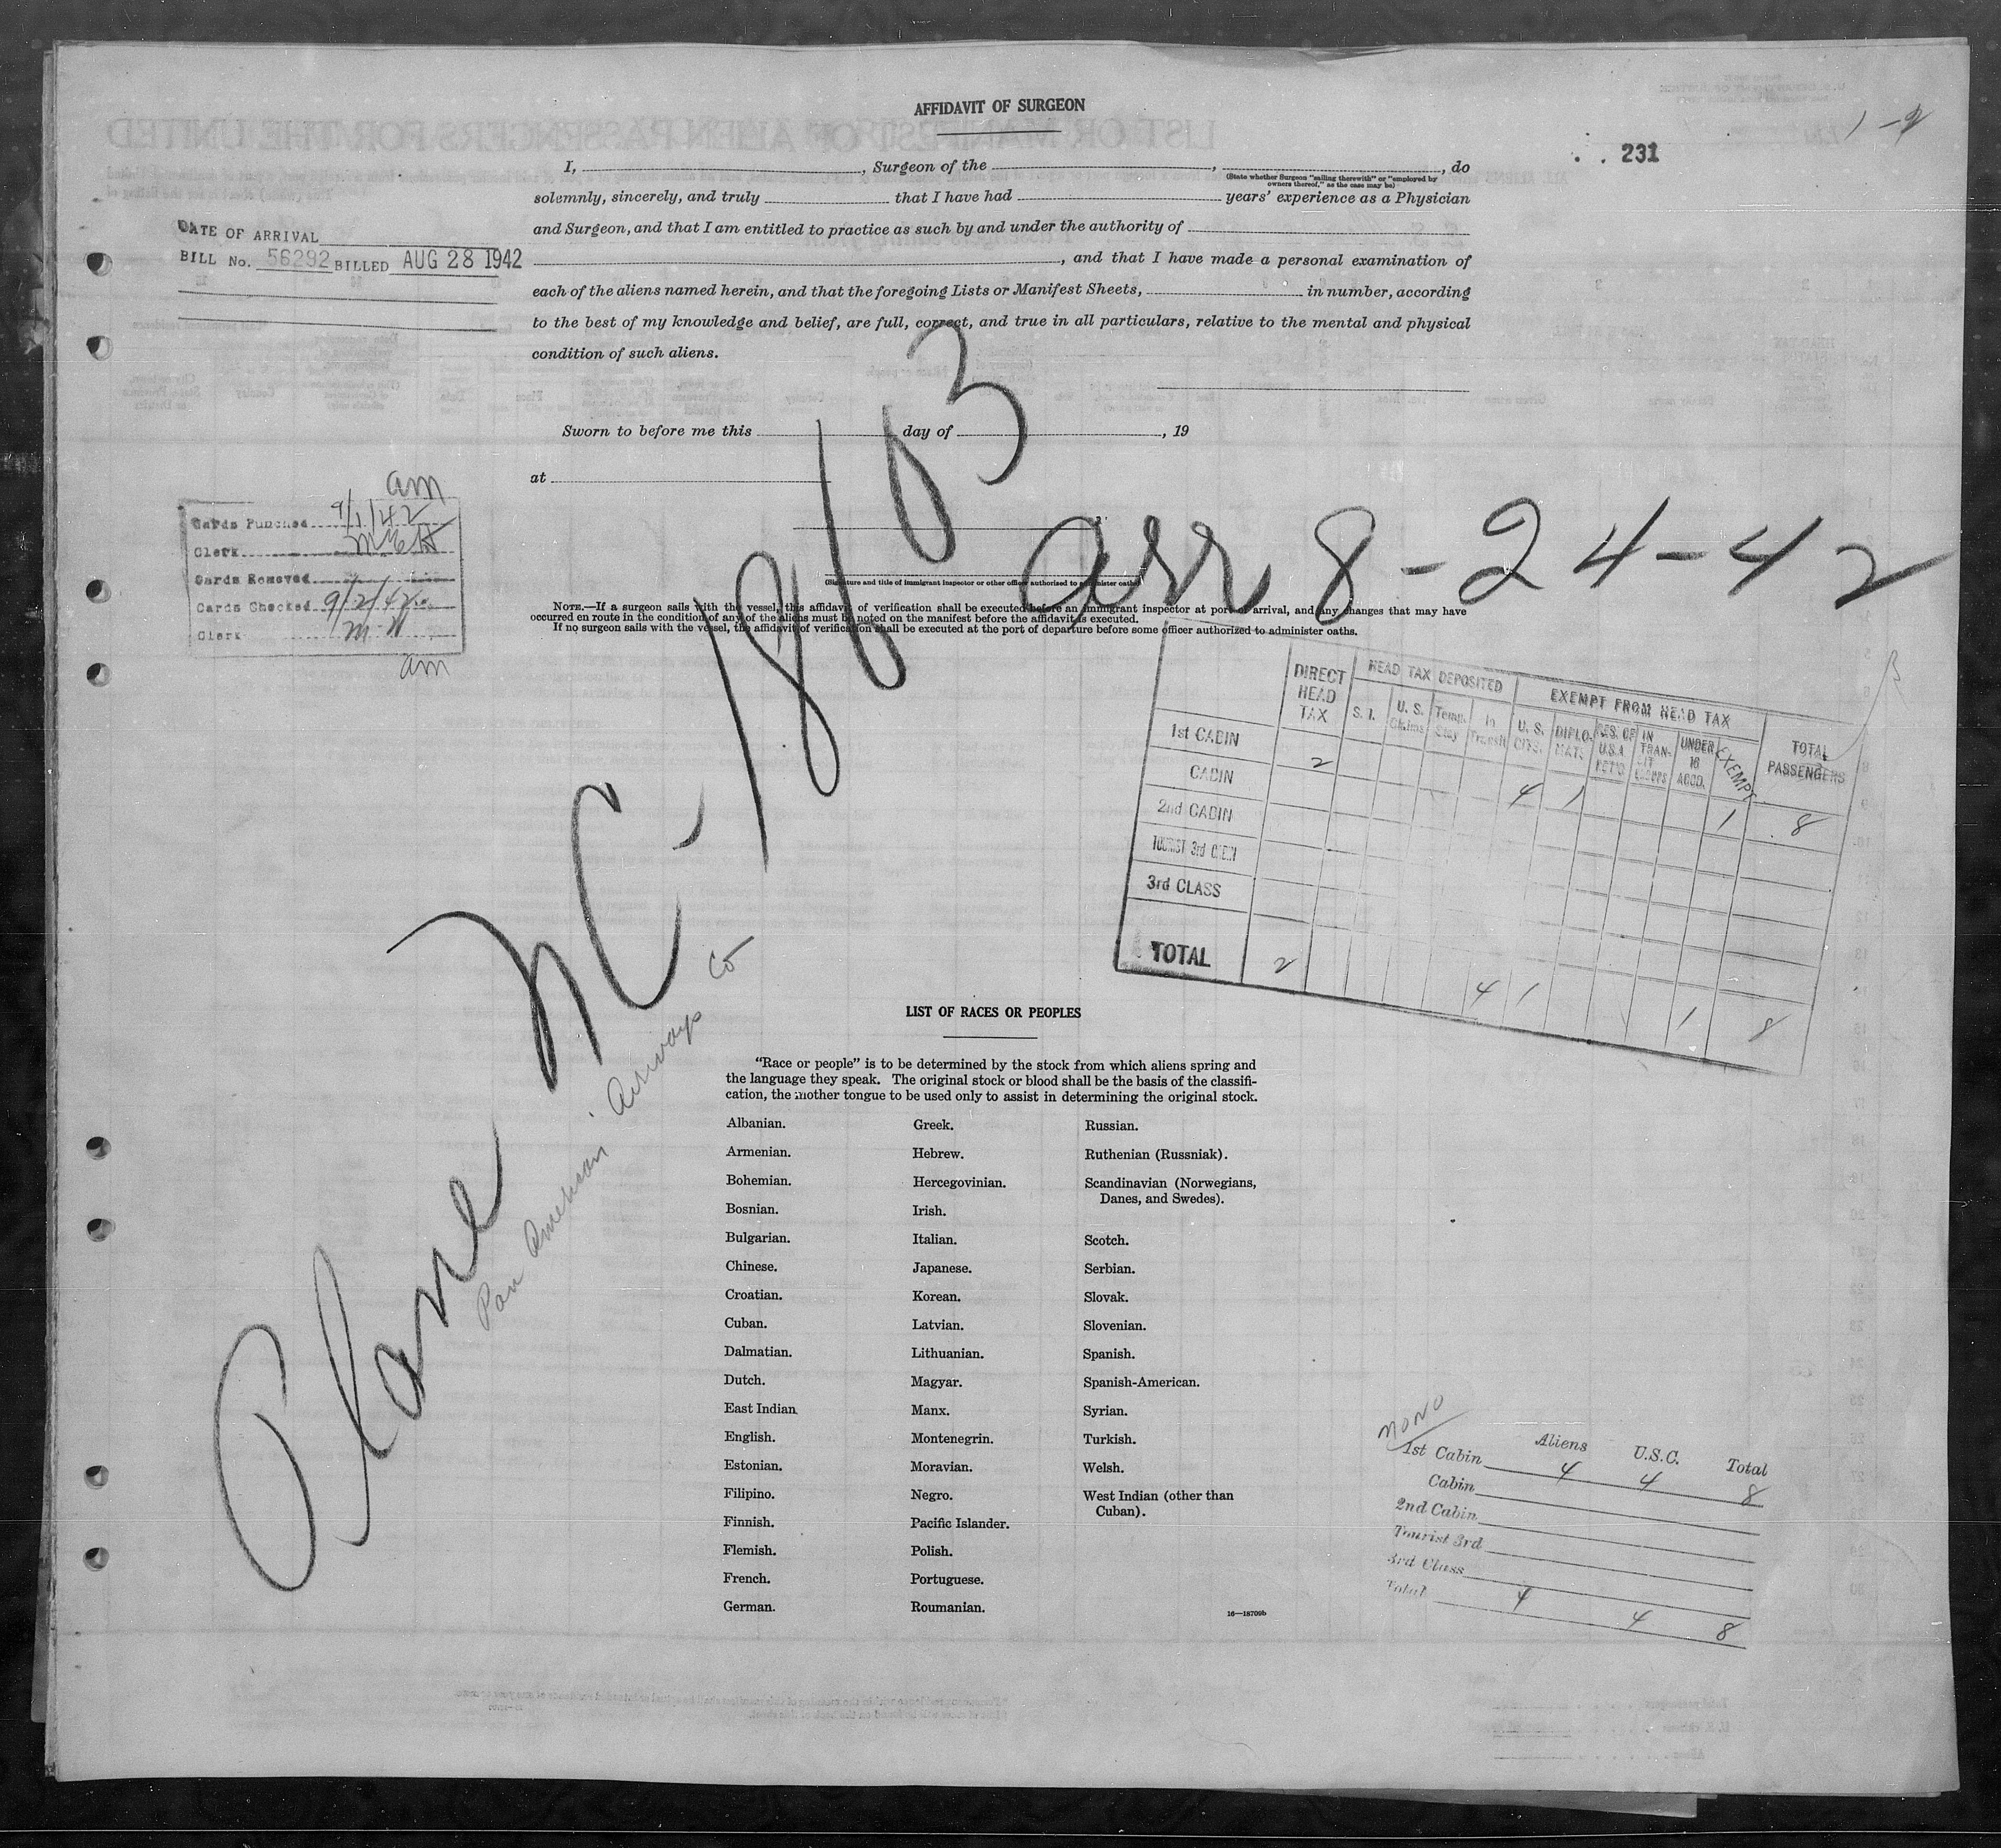 AFFIDAVIT OF SURGEON
1-2
231
I, , Surgeon of the , , do
(State whether Surgeon "sailing therewith" or "employed by owners thereof," as the case may be)
solemnly, sincerely, and truly that I have had years' experience as a Physician
and Surgeon, and that I am entitled to practice as such by and under the authority of
, and that I have made a personal examination of
each of the aliens named herein, and that the foregoing Lists or Manifest Sheets, in number, according
to the best of my knowledge and belief, are full, correct, and true in all particulars, relative to the mental and physical
condition of such aliens.
DATE OF ARRIVAL
BILL No. 56292 BILLED AUG 28 1942
Sworn to before me this day of , 19
at
am
Cards Punched 9/1/42
Clerk
Cards Removed
Cards Checked 9/2/42
Clerk
am
arr 8-24-42
(Signature and title of immigrant inspector or other officer authorized to administer oaths)
NOTE.—If a surgeon sails with the vessel, this affidavit of verification shall be executed before an immigrant inspector at port of arrival, and any changes that may have
occurred en route in the condition of any of the aliens must be noted on the manifest before the affidavit is executed.
If no surgeon sails with the vessel, the affidavit of verification shall be executed at the port of departure before some officer authorized to administer oaths.
Plane NC-18603
Pan American Airways Co
DIRECT HEAD TAX
HEAD TAX DEPOSITED
EXEMPT FROM HEAD TAX
S. I. U. S. Claims Temp. Stay In Transit U. S. CITS. DIPLOMATS RES. OF U.S.A. RET'D. IN TRANSIT GROUPS UNDER 16 ACCD. EXEMPT TOTAL PASSENGERS
1st CABIN 2 4 1 1 8
CABIN
2nd CABIN
TOURIST 3rd CABIN
3rd CLASS
TOTAL 2 4 1 1 8
LIST OF RACES OR PEOPLES
"Race or people" is to be determined by the stock from which aliens spring and
the language they speak. The original stock or blood shall be the basis of the classifi-
cation, the mother tongue to be used only to assist in determining the original stock.
Albanian. Greek. Russian.
Armenian. Hebrew. Ruthenian (Russniak).
Bohemian. Hercegovinian. Scandinavian (Norwegians,
Danes, and Swedes).
Bosnian. Irish.
Bulgarian. Italian. Scotch.
Chinese. Japanese. Serbian.
Croatian. Korean. Slovak.
Cuban. Latvian. Slovenian.
Dalmatian. Lithuanian. Spanish.
Dutch. Magyar. Spanish-American.
East Indian Manx. Syrian.
English. Montenegrin. Turkish.
Estonian. Moravian. Welsh.
Filipino. Negro. West Indian (other than
Cuban).
Finnish. Pacific Islander.
Flemish. Polish.
French. Portuguese.
German. Roumanian.
16—18709b
MONO
Aliens U.S.C. Total
1st Cabin 4 4 8
Cabin
2nd Cabin
Tourist 3rd
3rd Class
Total 4 4 8